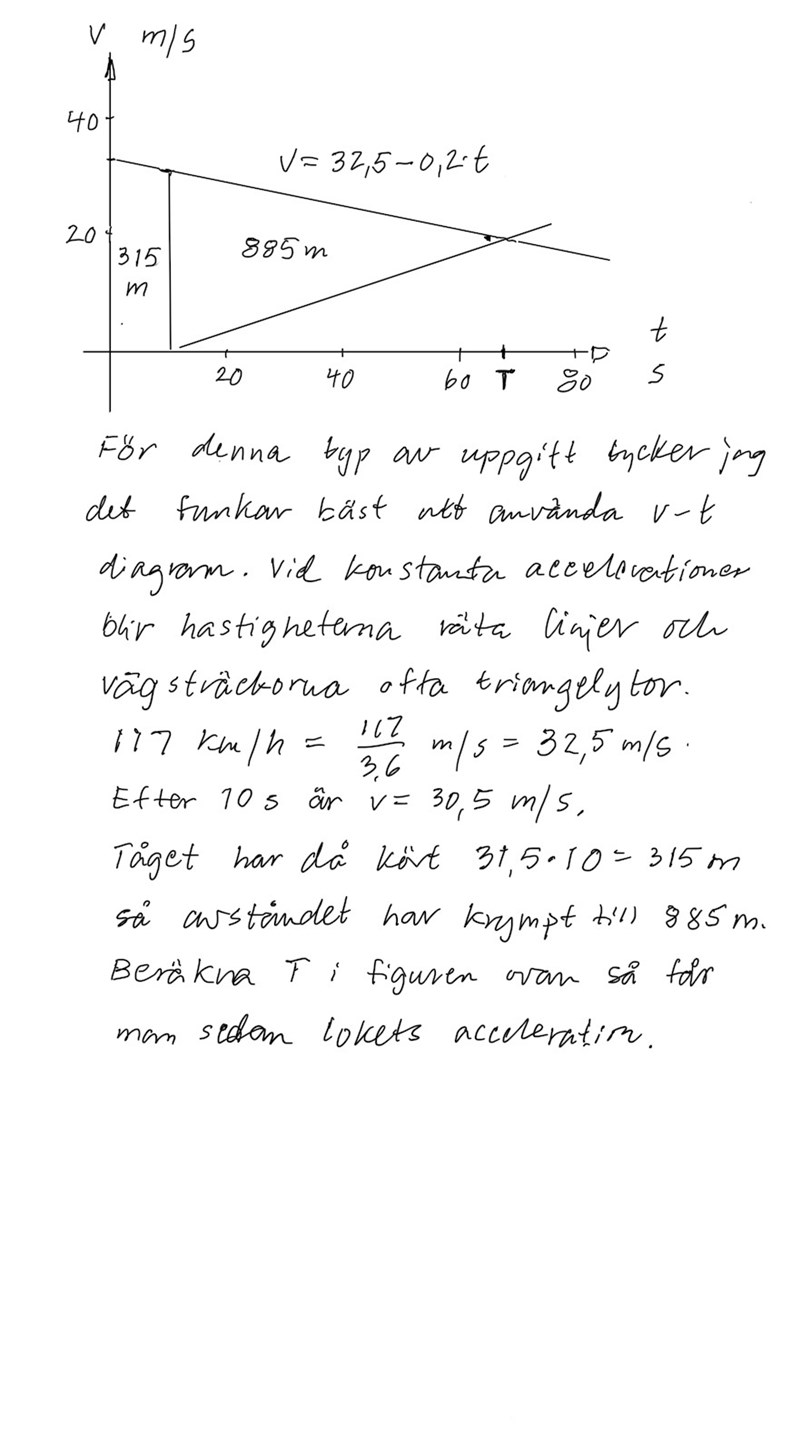 v m/s
40
v = 32,5 - 0,2·t
20
315
m
885 m
t
20 40 60 T 80 s
För denna typ av uppgift tycker jag
det funkar bäst att använda v-t
diagram. Vid konstanta accelerationer
blir hastigheterna räta linjer och
vägsträckorna ofta triangelytor.
117 km/h = 117/3,6 m/s = 32,5 m/s.
Efter 10 s är v = 30,5 m/s.
Tåget har då kört 31,5·10 = 315 m
så avståndet har krympt till 885 m.
Beräkna T i figuren ovan så får
man sedan lokets acceleration.